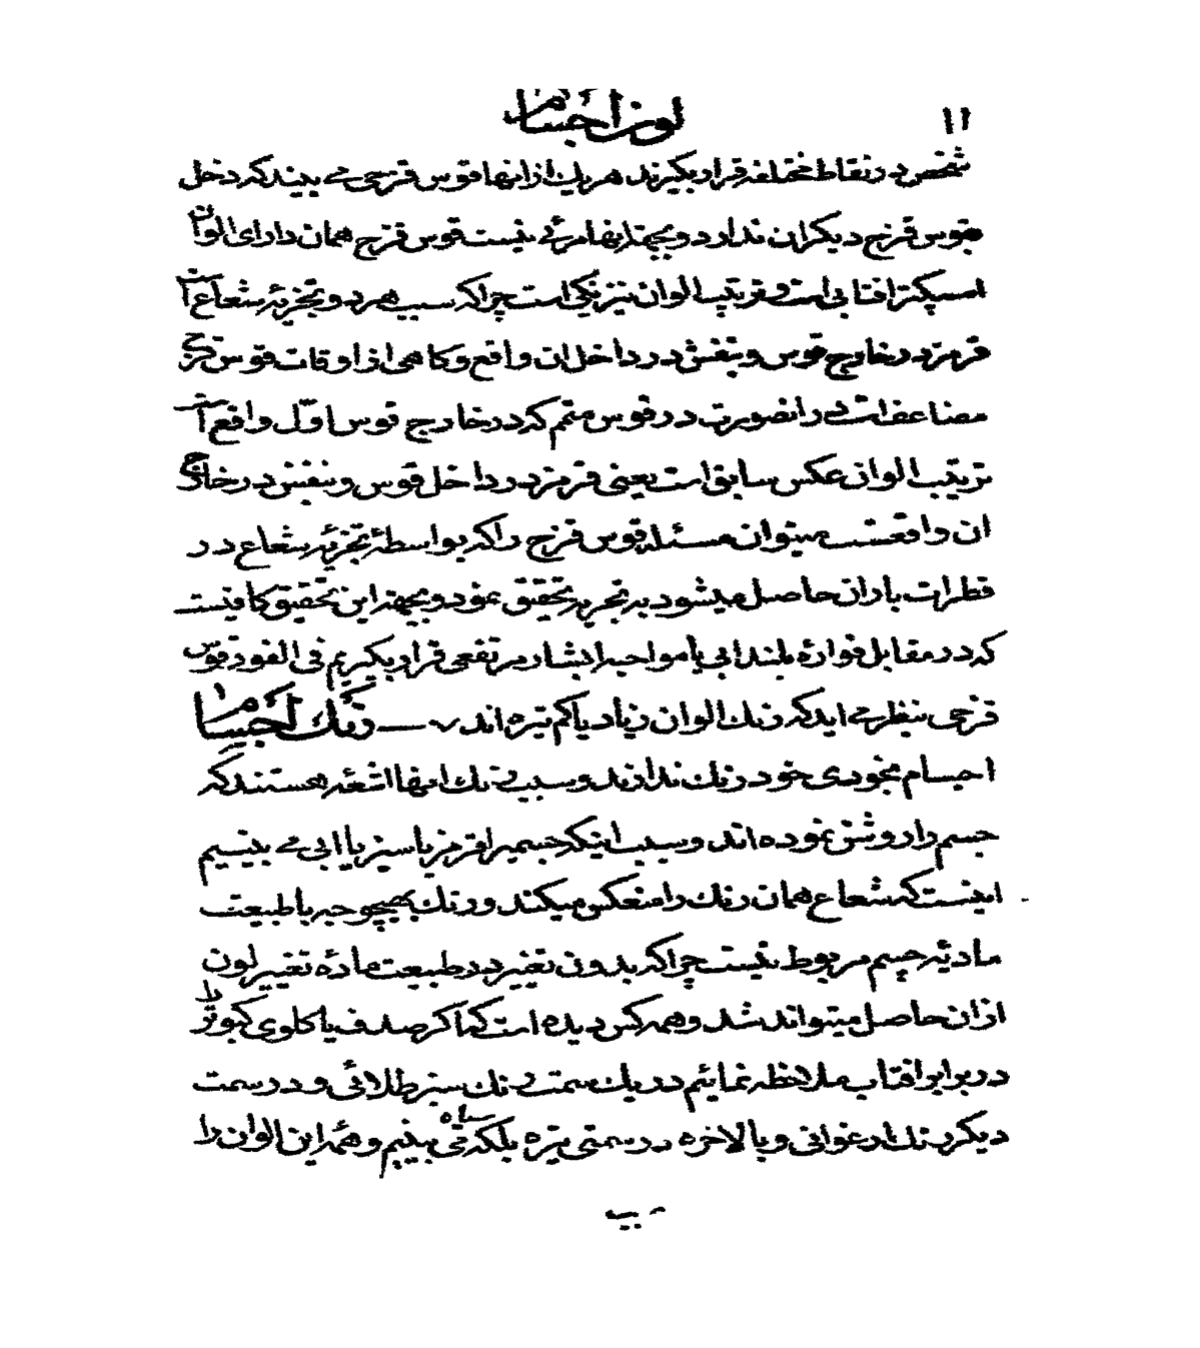 ۱۱ لون اجسام
شخص در نقاط مختلفه قرار بگیرند هر یک از انها قوس قزحی می بیند که دخل
بقوس قزح دیگران ندارد و بجهة انها مرئی نیست قوس قزح همان دارای الوان
اسپکتر افتابی است و ترتیب الوان نیز یکی است چرا که سبب هر دو تجزیهٔ شعاع است
قرمز در خارج قوس و بنفش در داخل ان واقع و کاهی از اوقات قوس قزح
مضاعف است در انصورت در قوس متمم که در خارج قوس اوّل واقع است
ترتیب الوان عکس سابق است یعنی قرمز در داخل قوس و بنفش در خارج
ان واقعست میتوان مسئله قوس قزح را که بواسطهٔ تجزیهٔ شعاع در
قطرات باران حاصل میشود به تجربه تحقیق نمود و بجهة این تحقیق کافیست
که در مقابل فوارهٔ بلند ابی یا مواجه ابشار مرتفعی قرار بگیریم فی الفور قوس
قزحی بنظر می اید که رنک الوان زیاد یا کم تیره اند ۷ — رنک اجسام
اجسام بخودی خود رنک ندارند و سبب رنک انها اشعّه هستند که
جسم را روشن نموده اند و سبب اینکه جسمیرا قرمز یا سبز یا ابی می بینیم
اینست که شعاع همان رنک را منعکس میکند و رنک بهیچوجه با طبیعت
مادیّه جسم مربوط نیست چرا که بدون تغییر در طبیعت ماده تغییر لون
از ان حاصل میتواند شد و همه کس دیده است که اکر صدف یا کلوی کبوتر را
در برابر افتاب ملاحظه نمائیم در یک سمت رنک سبز طلائی و در سمت
دیکر رنک ارغوانی و بالاخره در سمتی تیره بلکه سیاه می بینیم و همه این الوان را